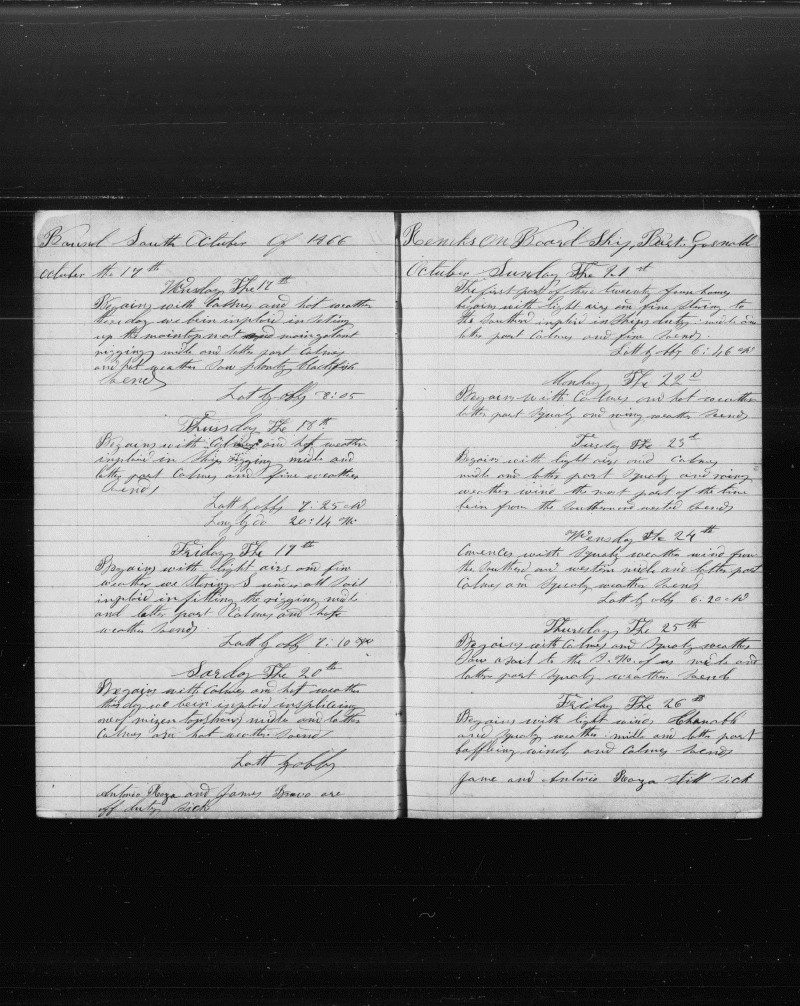 Bound South October of 1866
October the 17th
Wensday The 17th
Begains with Calmes and hot weather
this day we been inploid in seting
up the maintopmast and maingalant
rigging midle and latter part Calmes
and hot weather Saw plenty blackfish
So ends
Latt by obbs 7:05
Thursday The 18th
Begains with Calmes and hot weather
inploid in Ships rigging midle and
latter part Calmes and fine weather
So ends
Latt by obbs 7:25
Long by do 20:14 W
Friday The 19th
Begains with light airs and fin
weather we stering S under all Sail
inploid in fitting the rigging midle
and latter part Calmes and hot
weather So ends
Latt by obbs 7:10
Sarday The 20th
Begains with Calmes and hot weather
this day we been inploid in splicing
one of mizen midle and latter
Calmes and hot weather So ends
Latt by obbs
Antonio Roza and James Bravo are
off duty Sick
Remarks On Board Ship Bart. Gosnold
October Sunday The 21st
The first part of thes twenty four hours
begains with light airs and fine stering to
the Southerd inploid in Ships duty. midle and
latter part Calmes and fine So ends.
Latt by obbs 6:46
Monday The 22d
Begains with Calmes and hot weather
latter part Squaly and rainy weather So ends
Tusday The 23d
Begains with light airs and Calmes
midle and latter part Squaly and rainy
weather wind the most part of the time
bein from the Southerd and So ends
Wensday The 24th
Comences with Squaly weather wind from
the Southerd and western midle and latter part
Calmes and Squaly weather So ends
Latt by obbs 6:20
Thursday The 25th
Begains with Calmes and Squaly weather
Saw a sail to the S.W. of us midle and
latter part Squaly weather So ends
Friday The 26th
Begains with light winds
and Squaly weather midle and latter part
baffleing winds and Calmes So ends
Jame and Antonio Roza still sick